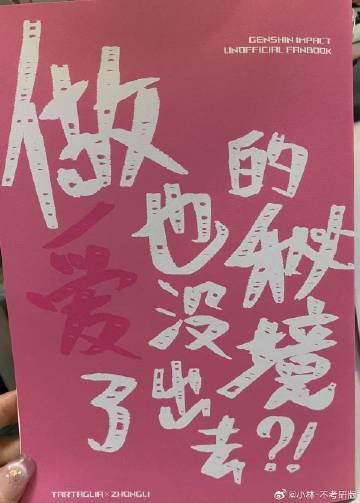 GENSHIN IMPACT
UNOFFICIAL FANBOOK
做爱了
也没出去
的秘境?!
TARTAGLIA × ZHONGLI
@小林-不考研版